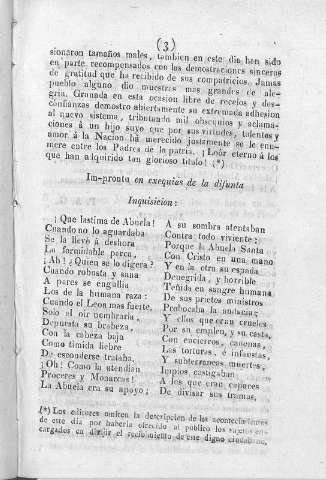 (3)
sionaron tamaños males, tambien en este dia han sido
en parte recompensados con las demostraciones sinceras
de gratitud que ha recibido de sus compatricios. Jamas
pueblo alguno dio muestras mas grandes de ale-
gria. Granada en esta ocasion libre de recelos y des-
confianzas demostro abiertamente su extremada adhesion
al nuevo sistema, tributando mil obsequios y aclama-
ciones á un hijo suyo que por sus virtudes, talentos y
amor á la Nacion ha merecido justamente se le enu-
mere entre los Padres de la patria. ¡Loór eterno á los
que han alquirido tan glorioso titulo! (*)
Im-pronta en exequias de la difunta
Inquisicion:
¡Que lastima de Abuela!
Cuando no lo aguardaba
Se la llevó á deshora
La formidable parca,
¡Ah! ¿Quien se lo digera?
Cuando robusta y sana
A pares se engullia
Los de la humana raza:
Cuando el Leon mas fuerte,
Solo al oir nombrarla,
Depuesta su brabeza,
Con la cabeza baja
Como timida liebre
De esconderse trataba.
¡Oh! Como la atendian
Proceres y Monarcas!
La Abuela era su apoyo;
A su sombra atentaban
Contra todo viviente;
Porque la Abuela Santa
Con Cristo en una mano
Y en la otra su espada
Denegrida, y horrible
Teñida en sangre humana
De sus prietos ministros
Probocaba la audacia;
Y ellos que eran crueles
Por su empleo, y su casta,
Con encierros, cadenas,
Las torturas, é infaustas,
Y subterraneas muertes,
Impios castigaban
A los que eran capaces
De divisar sus tramas,
(*) Los editores omiten la descripcion de los acontecimientos
de este dia por haberla ofrecido al público los sujetos en-
cargados en dirijir el recibimiento de este digno ciudadano.